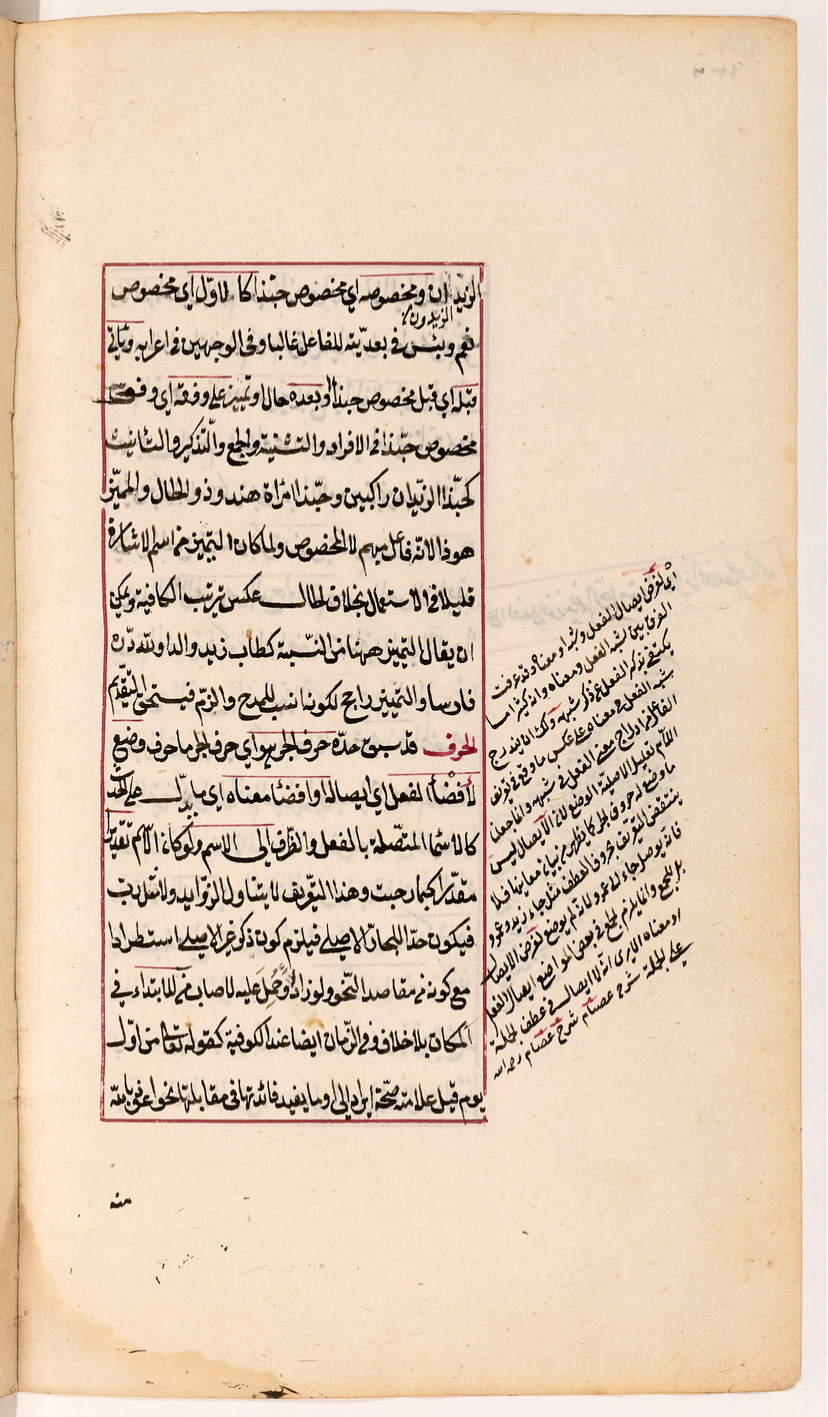 الزيدان ومخصوصه اي مخصوص حبذا كالاول اي مخصوص
الزيدون
نعم وبئس في بعديته للفاعل غالبا وفى الوجهين في اعرابه ويأتي
قبله اي قبل مخصوص حبذا او بعده حال او تمييز على وفقه اي وفق
مخصوص حبّذا في الافراد والتثنية والجمع والتذكير والتأنيث
كحبّذا الزيدان راكبين وحبّذا امرأة هند وذو الحال والمميّز
هو ذا لانه فاعل مبهم لا المخصوص ولما كان التمييز من اسم الاشارة
قليلا في الاستعمال بخلاف الحال عكس ترتيب الكافية ويمكن
ان يقال التمييز ههنا من النّسبة كطاب زيد والدا ولله درّه
فارسا والتمييز راجح لكونه انسب للمدح والزم فيستحق التقديم
الحرف قد سبق حدّه حرف الجر هو اي حرف الجر ما حرف وضع
لأفضاء الفعل اي ايصاله او افضاء معناه اي ما يدلّ على الحدث
كالاسماء المتّصلة بالفعل والظرف الى الاسم ولو كان الاسم تقديرا
مقدّرا كبما رحبت وهذا التعريف لا يتناول الزوايد ولا مثل ربّ
فيكون حدّا للجارّ الاصلي فيلزم كون ذكر غير الاصلي استطرادا
مع كونه في مقاصد النحو ولو زاد وحُمِلَ عليه لاصاب من للابتداء في
المكان بلا خلاف وفي الزمان ايضا عند الكوفية كقوله تعالى من اوّل
يوم قيل علامته صحّة ايراد الى او ما يفيد فائدتها في مقابلتها نحو اعوذ بالله
منه
اي لغرض ايصال الفعل وشبهه او معناه وقد عرفت
الفرق بين شبه الفعل ومعناه وانه كثيرا ما
يكتفى بذكر الفعل عن ذكر شبهه ولك ان يندرج
شبه الفعل في معناه على عكس ما وقع في تعريف
الفاعل من ادراج معنى الفعل في شبهه وانما جعلنا
اللام تعليل الاصلية الوضع لان الايصال ليس
ما وضع له حروف الجر كما يظهر من بيان معانيها فلا
ينتقض التعريف بحروف العطف مثل جاء زيد وعمرو
فانه يوصل جاء الى عمرو لانه لم يوضع لغرض الايصال
بل للجمع وانما يلزم الجمع في بعض المواضع ايصال الفعل
او معناه الا يرى انه لا ايصال في عطف الجملة
على الجملة شرح عصام شرح عصام رحمه الله